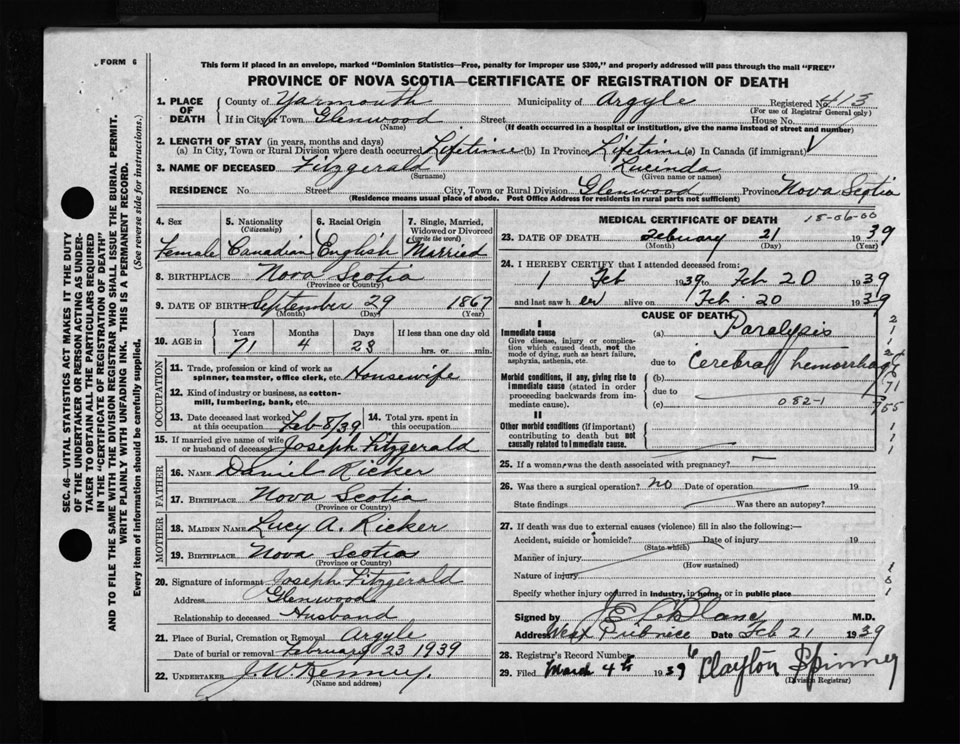 FORM 6
This form if placed in an envelope, marked "Dominion Statistics—Free, penalty for improper use $300," and properly addressed will pass through the mail "FREE"
PROVINCE OF NOVA SCOTIA—CERTIFICATE OF REGISTRATION OF DEATH
1. PLACE OF DEATH
County of Yarmouth Municipality of Argyle Registered No. 413
(For use of Registrar General only)
If in City or Town Glenwood Street House No.
(Name) (If death occurred in a hospital or institution, give the name instead of street and number)
2. LENGTH OF STAY (in years, months and days)
(a) In City, Town or Rural Division where death occurred Lifetime (b) In Province Lifetime (c) In Canada (if immigrant)
3. NAME OF DECEASED Fitzgerald Lucinda
(Surname) (Given name or names)
RESIDENCE No. Street City, Town or Rural Division Glenwood Province Nova Scotia
(Residence means usual place of abode. Post Office Address for residents in rural parts not sufficient)
4. Sex 5. Nationality (Citizenship) 6. Racial Origin 7. Single, Married, Widowed or Divorced (write the word)
Female Canadian English Married
8. BIRTHPLACE Nova Scotia
(Province or Country)
9. DATE OF BIRTH September 29 1867
(Month) (Day) (Year)
10. AGE in Years Months Days If less than one day old
71 4 23 hrs. or min.
OCCUPATION
11. Trade, profession or kind of work as spinner, teamster, office clerk, etc. Housewife
12. Kind of industry or business, as cotton-mill, lumbering, bank, etc.
13. Date deceased last worked at this occupation Feb-8/39 14. Total yrs. spent in this occupation
15. If married give name of wife or husband of deceased Joseph Fitzgerald
FATHER
16. NAME Daniel Ricker
17. BIRTHPLACE Nova Scotia
(Province or Country)
MOTHER
18. MAIDEN NAME Lucy A. Ricker
19. BIRTHPLACE Nova Scotia
(Province or Country)
20. Signature of informant Joseph Fitzgerald
Address Glenwood
Relationship to deceased Husband
21. Place of Burial, Cremation or Removal Argyle
Date of burial or removal February 23 1939
22. UNDERTAKER
(Name and address)
MEDICAL CERTIFICATE OF DEATH 18-06-00
23. DATE OF DEATH February 21 1939
(Month) (Day) (Year)
24. I HEREBY CERTIFY that I attended deceased from:
1 Feb 1939 to Feb 20 1939
and last saw her alive on Feb. 20 1939
CAUSE OF DEATH
I
Immediate cause
Give disease, injury or complication which caused death, not the mode of dying, such as heart failure, asphyxia, asthenia, etc.
(a) Paralysis
due to Cerebral hemorrhage
Morbid conditions, if any, giving rise to immediate cause (stated in order proceeding backwards from immediate cause).
(b)
due to
(c) 082-1
II
Other morbid conditions (if important) contributing to death but not causally related to immediate cause.
25. If a woman, was the death associated with pregnancy?
26. Was there a surgical operation? no Date of operation 19
State findings Was there an autopsy?
27. If death was due to external causes (violence) fill in also the following:—
Accident, suicide or homicide? Date of injury 19
(State which)
Manner of injury
(How sustained)
Nature of injury
Specify whether injury occurred in industry, in home, or in public place
Signed by M.D.
Address West Pubnico Date Feb 21 1939
28. Registrar's Record Number 6
29. Filed March 4th 1939 Clayton Spinney
(Division Registrar)
SEC. 46—VITAL STATISTICS ACT MAKES IT THE DUTY
OF THE UNDERTAKER OR PERSON ACTING AS UNDER-
TAKER TO OBTAIN ALL THE PARTICULARS REQUIRED
IN THE "CERTIFICATE OF REGISTRATION OF DEATH"
AND TO FILE THE SAME WITH THE DIVISION REGISTRAR WHO SHALL ISSUE THE BURIAL PERMIT.
WRITE PLAINLY WITH UNFADING INK. THIS IS A PERMANENT RECORD.
Every item of information should be carefully supplied. (See reverse side for instructions.)